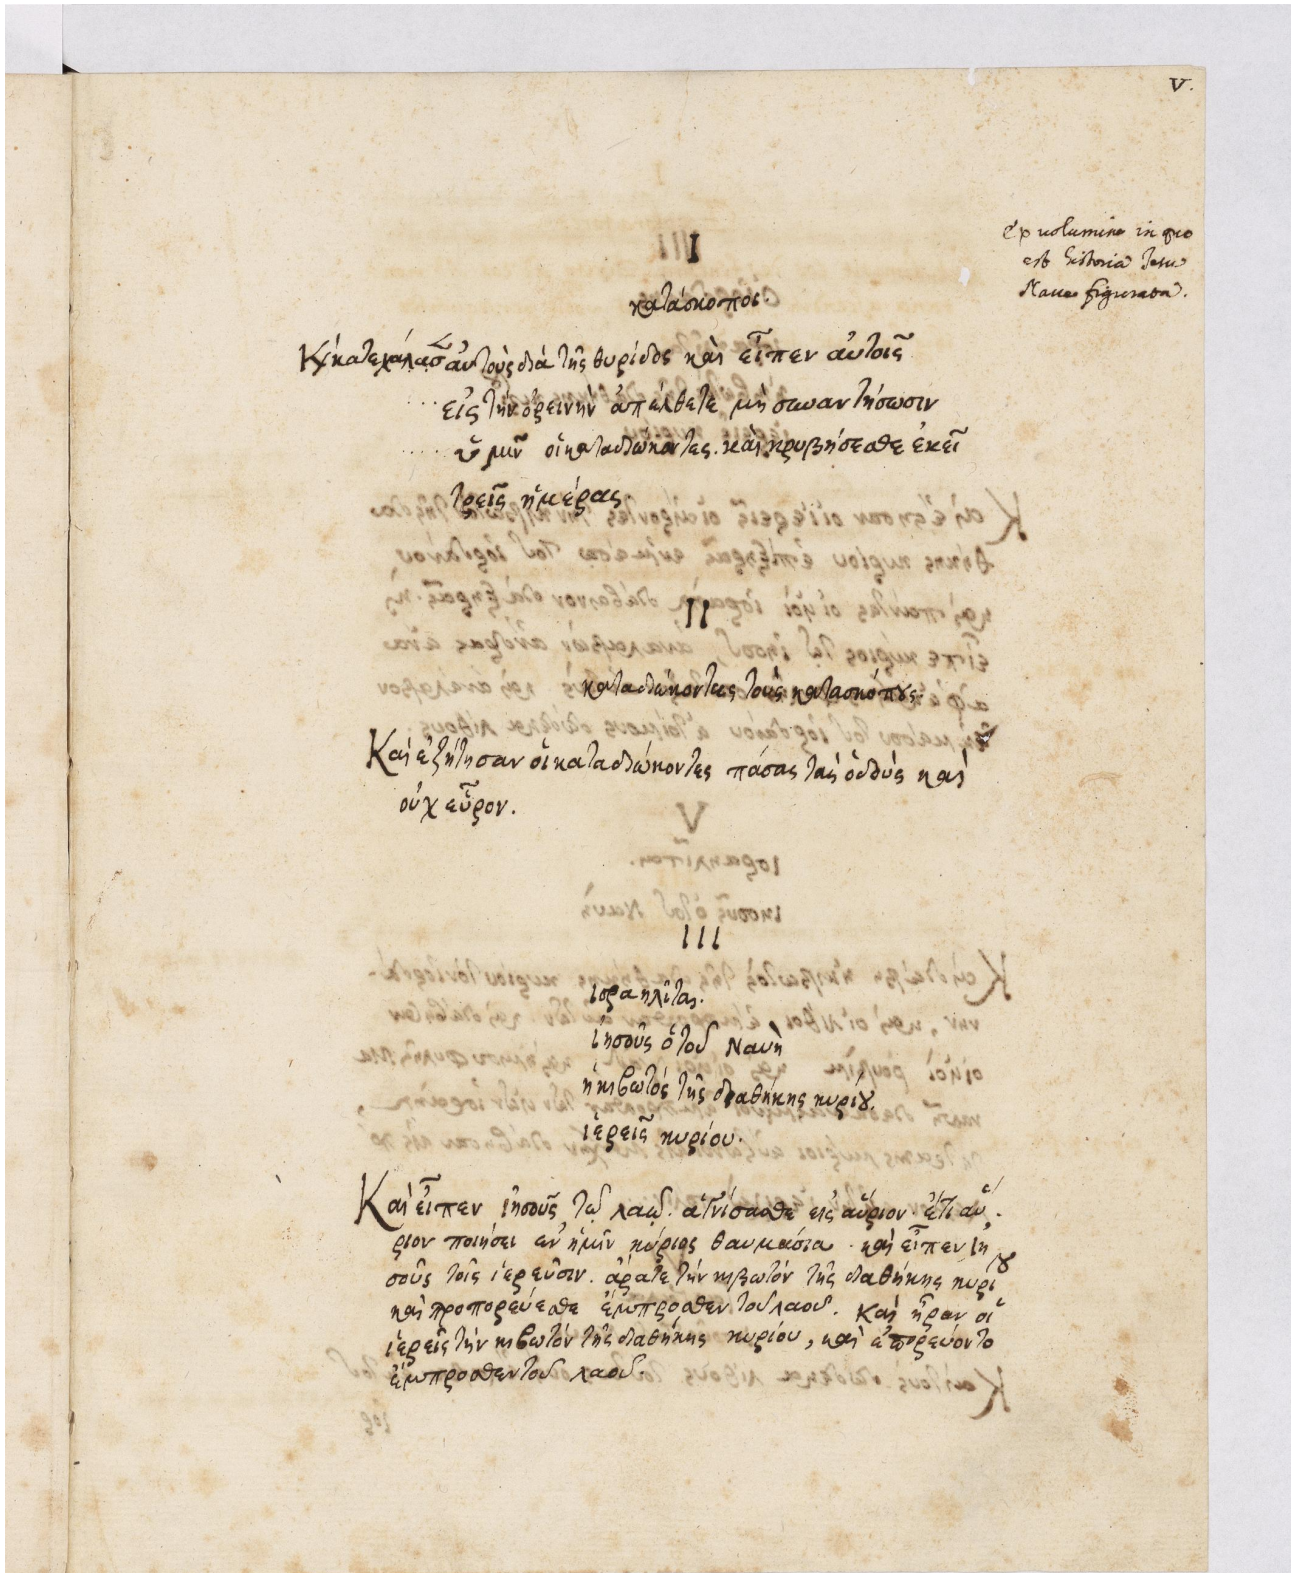 V.
Ex uolumine in quo
est historia Iesu
Naue figurata.
I
κατάσκοποι.
Κὴ κατεχάλασ αὐτοὺς διὰ τῆς θυρίδος καὶ εἶπεν αὐτοῖς
.... εἰς τὴν ὀρεινὴν ἀπέλθετε μὴ συναντήσωσιν
.... ὑμῖν οἱ καταδιώκοντες. καὶ κρυβήσεσθε ἐκεῖ
τρεῖς ἡμέρας.
II
καταδιώκοντες τοὺς κατασκόπȣς.
Καὶ ἐζήτησαν οἱ καταδιώκοντες πάσας τὰς ὁδοὺς καὶ
οὐχ εὗρον.
III
ισραηλῖται.
ἰησοῦς ὁ τοῦ Ναυὴ
ἡ κιβωτὸς τῆς διαθήκης κυρίȣ.
ἱερεῖς κυρίου.
Καὶ εἶπεν ἰησοῦς τῷ λαῷ. ἁγνίσασθε εἰς αὔριον. ἔτι αὔ
ριον ποιήσει ἐν ἡμῖν κύριος θαυμάσια. καὶ εἶπεν ιη
σοῦς τοῖς ἱερεῦσιν. ἄρατε τὴν κιβωτὸν τῆς διαθήκης κυρίȣ
καὶ προπορεύεσθε ἔμπροσθεν τοῦ λαοῦ. Καὶ ἦραν οἱ
ἱερεῖς τὴν κιβωτὸν τῆς διαθήκης κυρίου, καὶ ἐπορεύοντο
ἔμπροσθεν τοῦ λαοῦ.